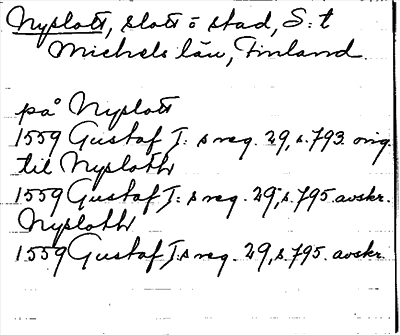 Nyslott, slott o stad, S:t
Michels län, Finland.
på Nyslott
1559 Gustaf I:s reg. 29, s. 793. orig.
til Nyslotth
1559 Gustaf I:s reg. 29, s. 795. avskr.
Nyslotth
1559 Gustaf I:s reg. 29, s. 795. avskr.